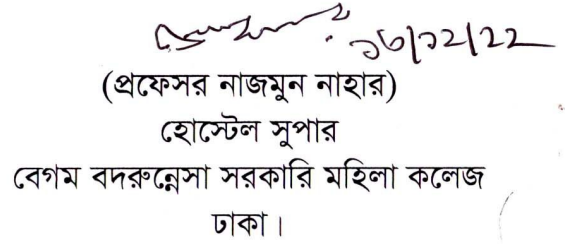 (প্রফেসর নাজমুন নাহার)
হোস্টেল সুপার
বেগম বদরুন্নেসা সরকারি মহিলা কলেজ
ঢাকা।